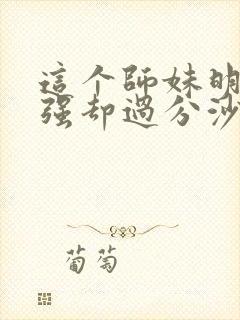 這个師妹明
强却過分沙
葡萄